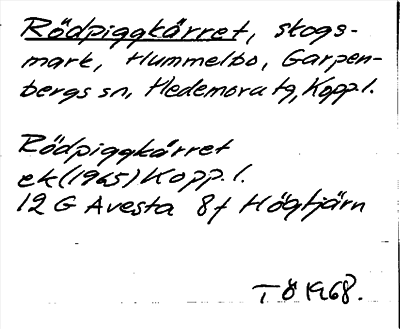 Rödpiggkärret, skogs-
mark, Hummelbo, Garpen-
bergs sn, Hedemora tg, Kopp. l.
Rödpiggkärret
ek (1965) Kopp. l.
12 G Avesta 8f Högtjärn
TÖ 1968.